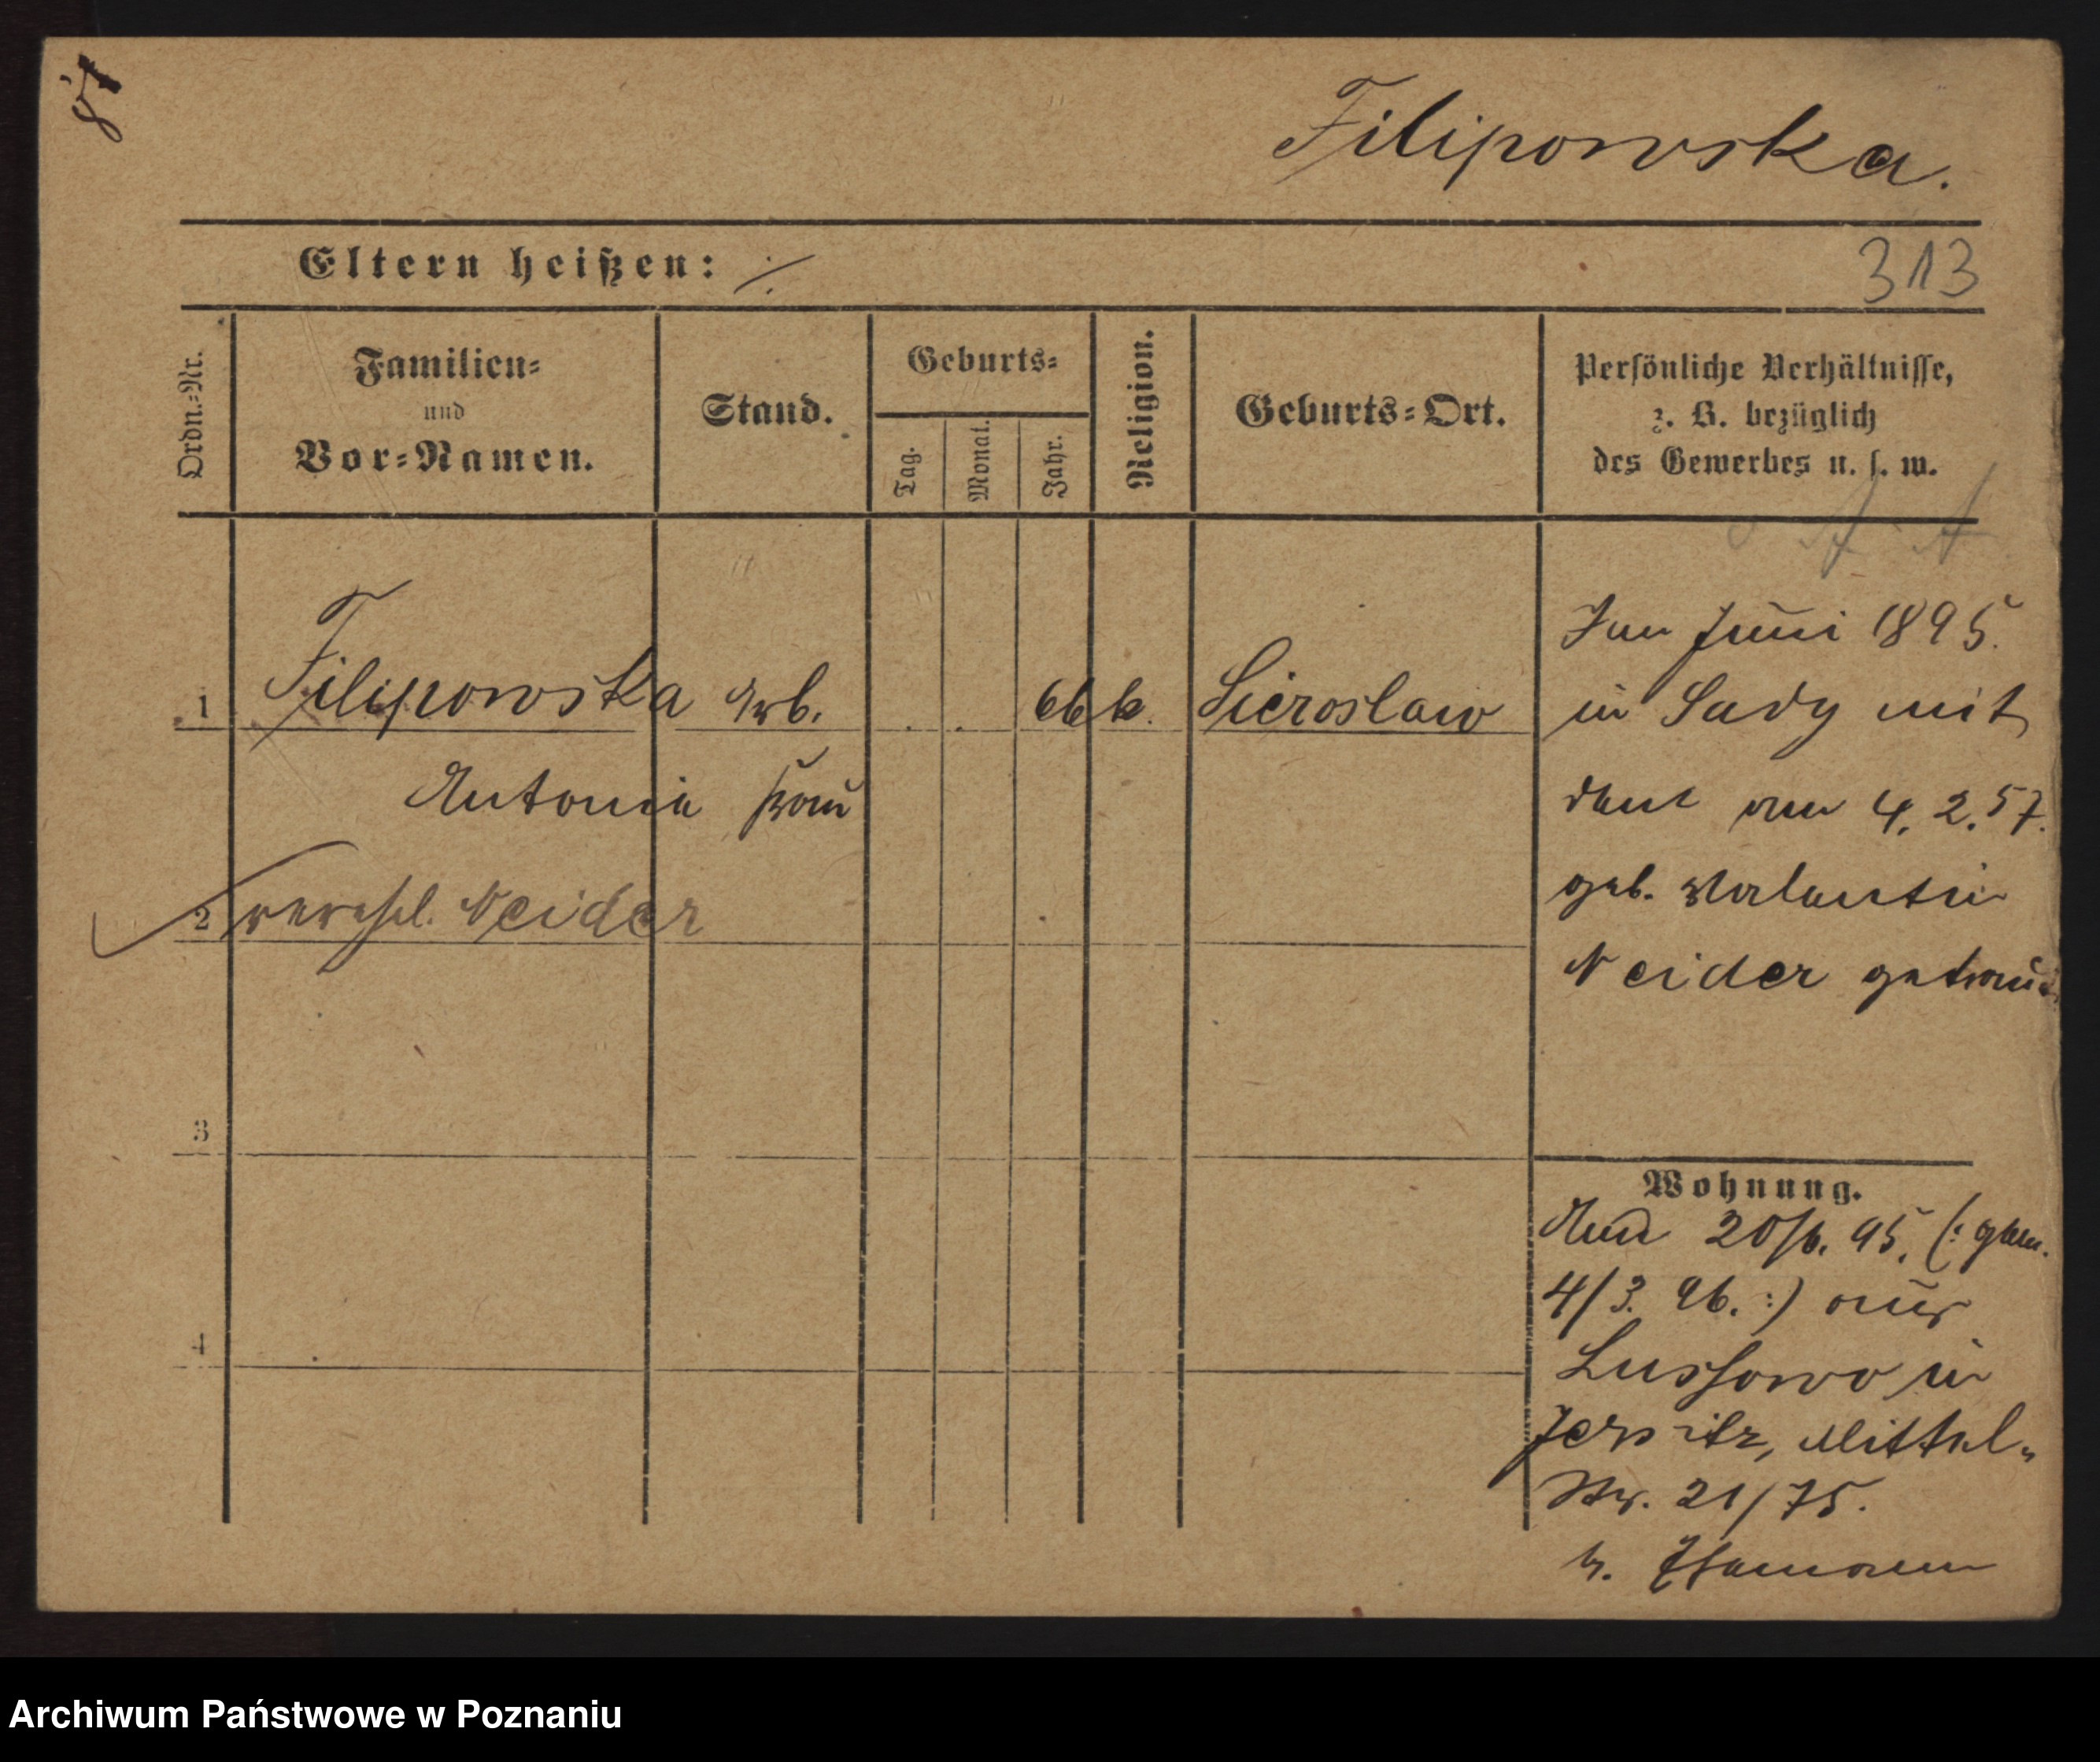 87
Filipowska.
Eltern heißen: ./.
313
Ordn.=Nr.
Familien=
und
Vor=Namen.
Stand.
Geburts=
Tag.
Monat.
Jahr.
Religion.
Geburts=Ort.
Persönliche Verhältnisse,
z. B. bezüglich
des Gewerbes u. s. w.
1
Filipowska Arb. 66 k. Sieroslaw
Antonia frau
2 verehel. Neider
3
4
Im Juni 1895.
in Sady mit
dem am 4. 2. 57.
geb. Valentin
Neider getraut
Wohnung.
Seit 20/6. 95. (: gem.
4/3. 96. :) aus
Lussowo in
Jersitz, Mittel-
Str. 21/75.
b.
Archiwum Państwowe w Poznaniu